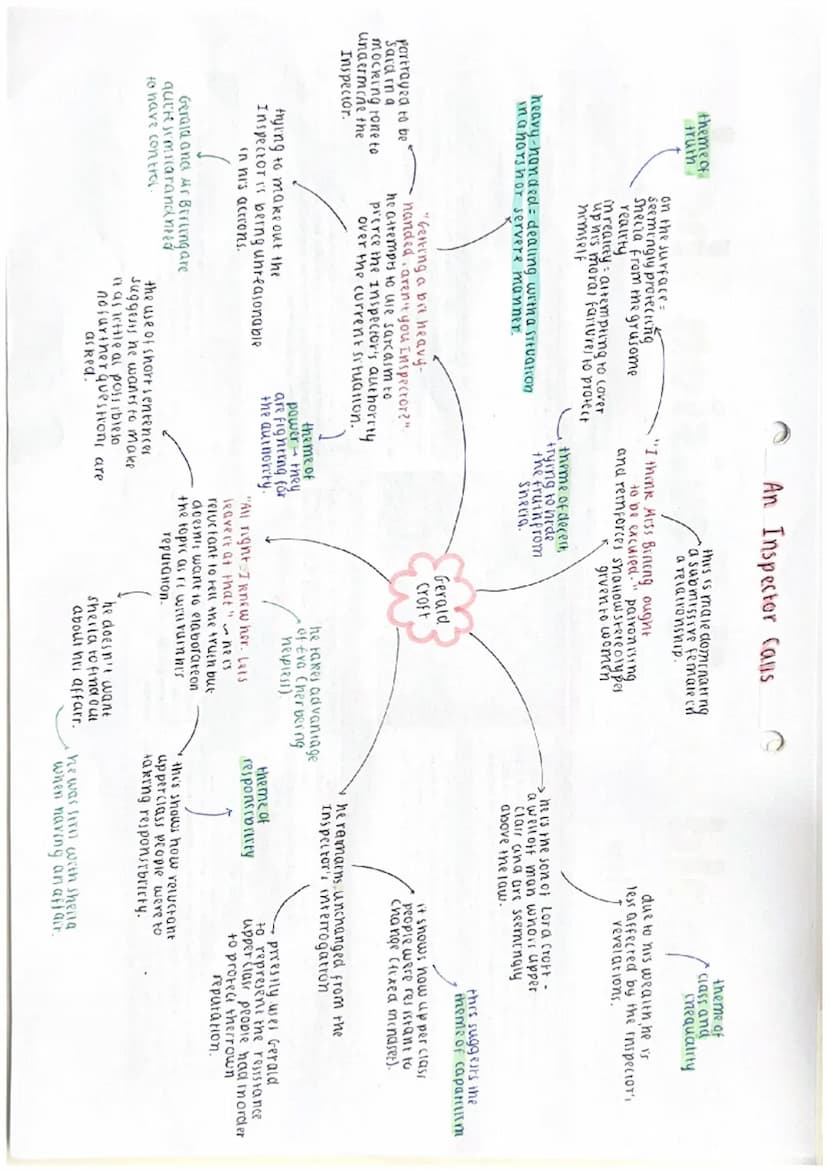 An Inspector Calls
Gerald
Croft
"I think Miss Birling ought
to be excused." patronising
and reinforces shallow stereotypes
given to women
this is male dominating
a submissive female in
a relationship.
on the surface =
seemingly protecting
Sheila from the gruesome
reality
in reality = attempting to cover
up his moral failures to protect
himself
theme of
truth
theme of deceit
trying to hide
the truth from
Sheila.
"Getting a bit heavy-
handed, aren't you Inspector?".
he attempts to use sarcasm to
pierce the Inspector's authority
over the current situation.
heavy-handed = dealing with a situation
in a harsh or servere manner.
portrayed to be
said in a
mocking tone to
undermine the
Inspector.
trying to make out the
Inspector is being unreasonable
in his actions.
Gerald and Mr Birling are
quite similar and need
to have control.
theme of
power → they
are fighting for
the authority.
"All right. I knew her. Lets
leave it at that" → he is
reluctant to tell the truth but
doesnt want to elaborate on
the topic as it will ruin his
reputation.
the use of short sentences
suggests he wants to make
it as little as possible so
no further questions are
asked.
he takes advantage
of Eva (her being
helpless).
he doesn't want
Sheila to find out
about his affair.
he was still with Sheila
when having an affair.
this shows how reluctant
upper class people were to
taking responsibility.
theme of
responsibility
he remains unchanged from the
Inspector's interrogation
it shows how upper class
people were resistant to
change (fixed mindset).
this suggests the
theme of capatilism
Priestly uses Gerald
to represent the resistance
upper class people had in order
to protect their own
reputation.
he is the son of Lord Croft -
a well off man who is upper
class and are seemingly
above the law.
due to his wealth, he is
less affected by the Inspector's
revelations.
theme of
class and
inequality